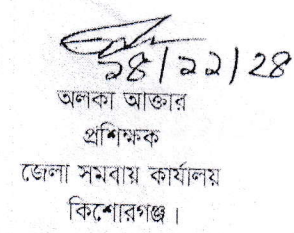 ২৪/১১/২৪
অলকা আক্তার
প্রশিক্ষক
জেলা সমবায় কার্যালয়
কিশোরগঞ্জ।